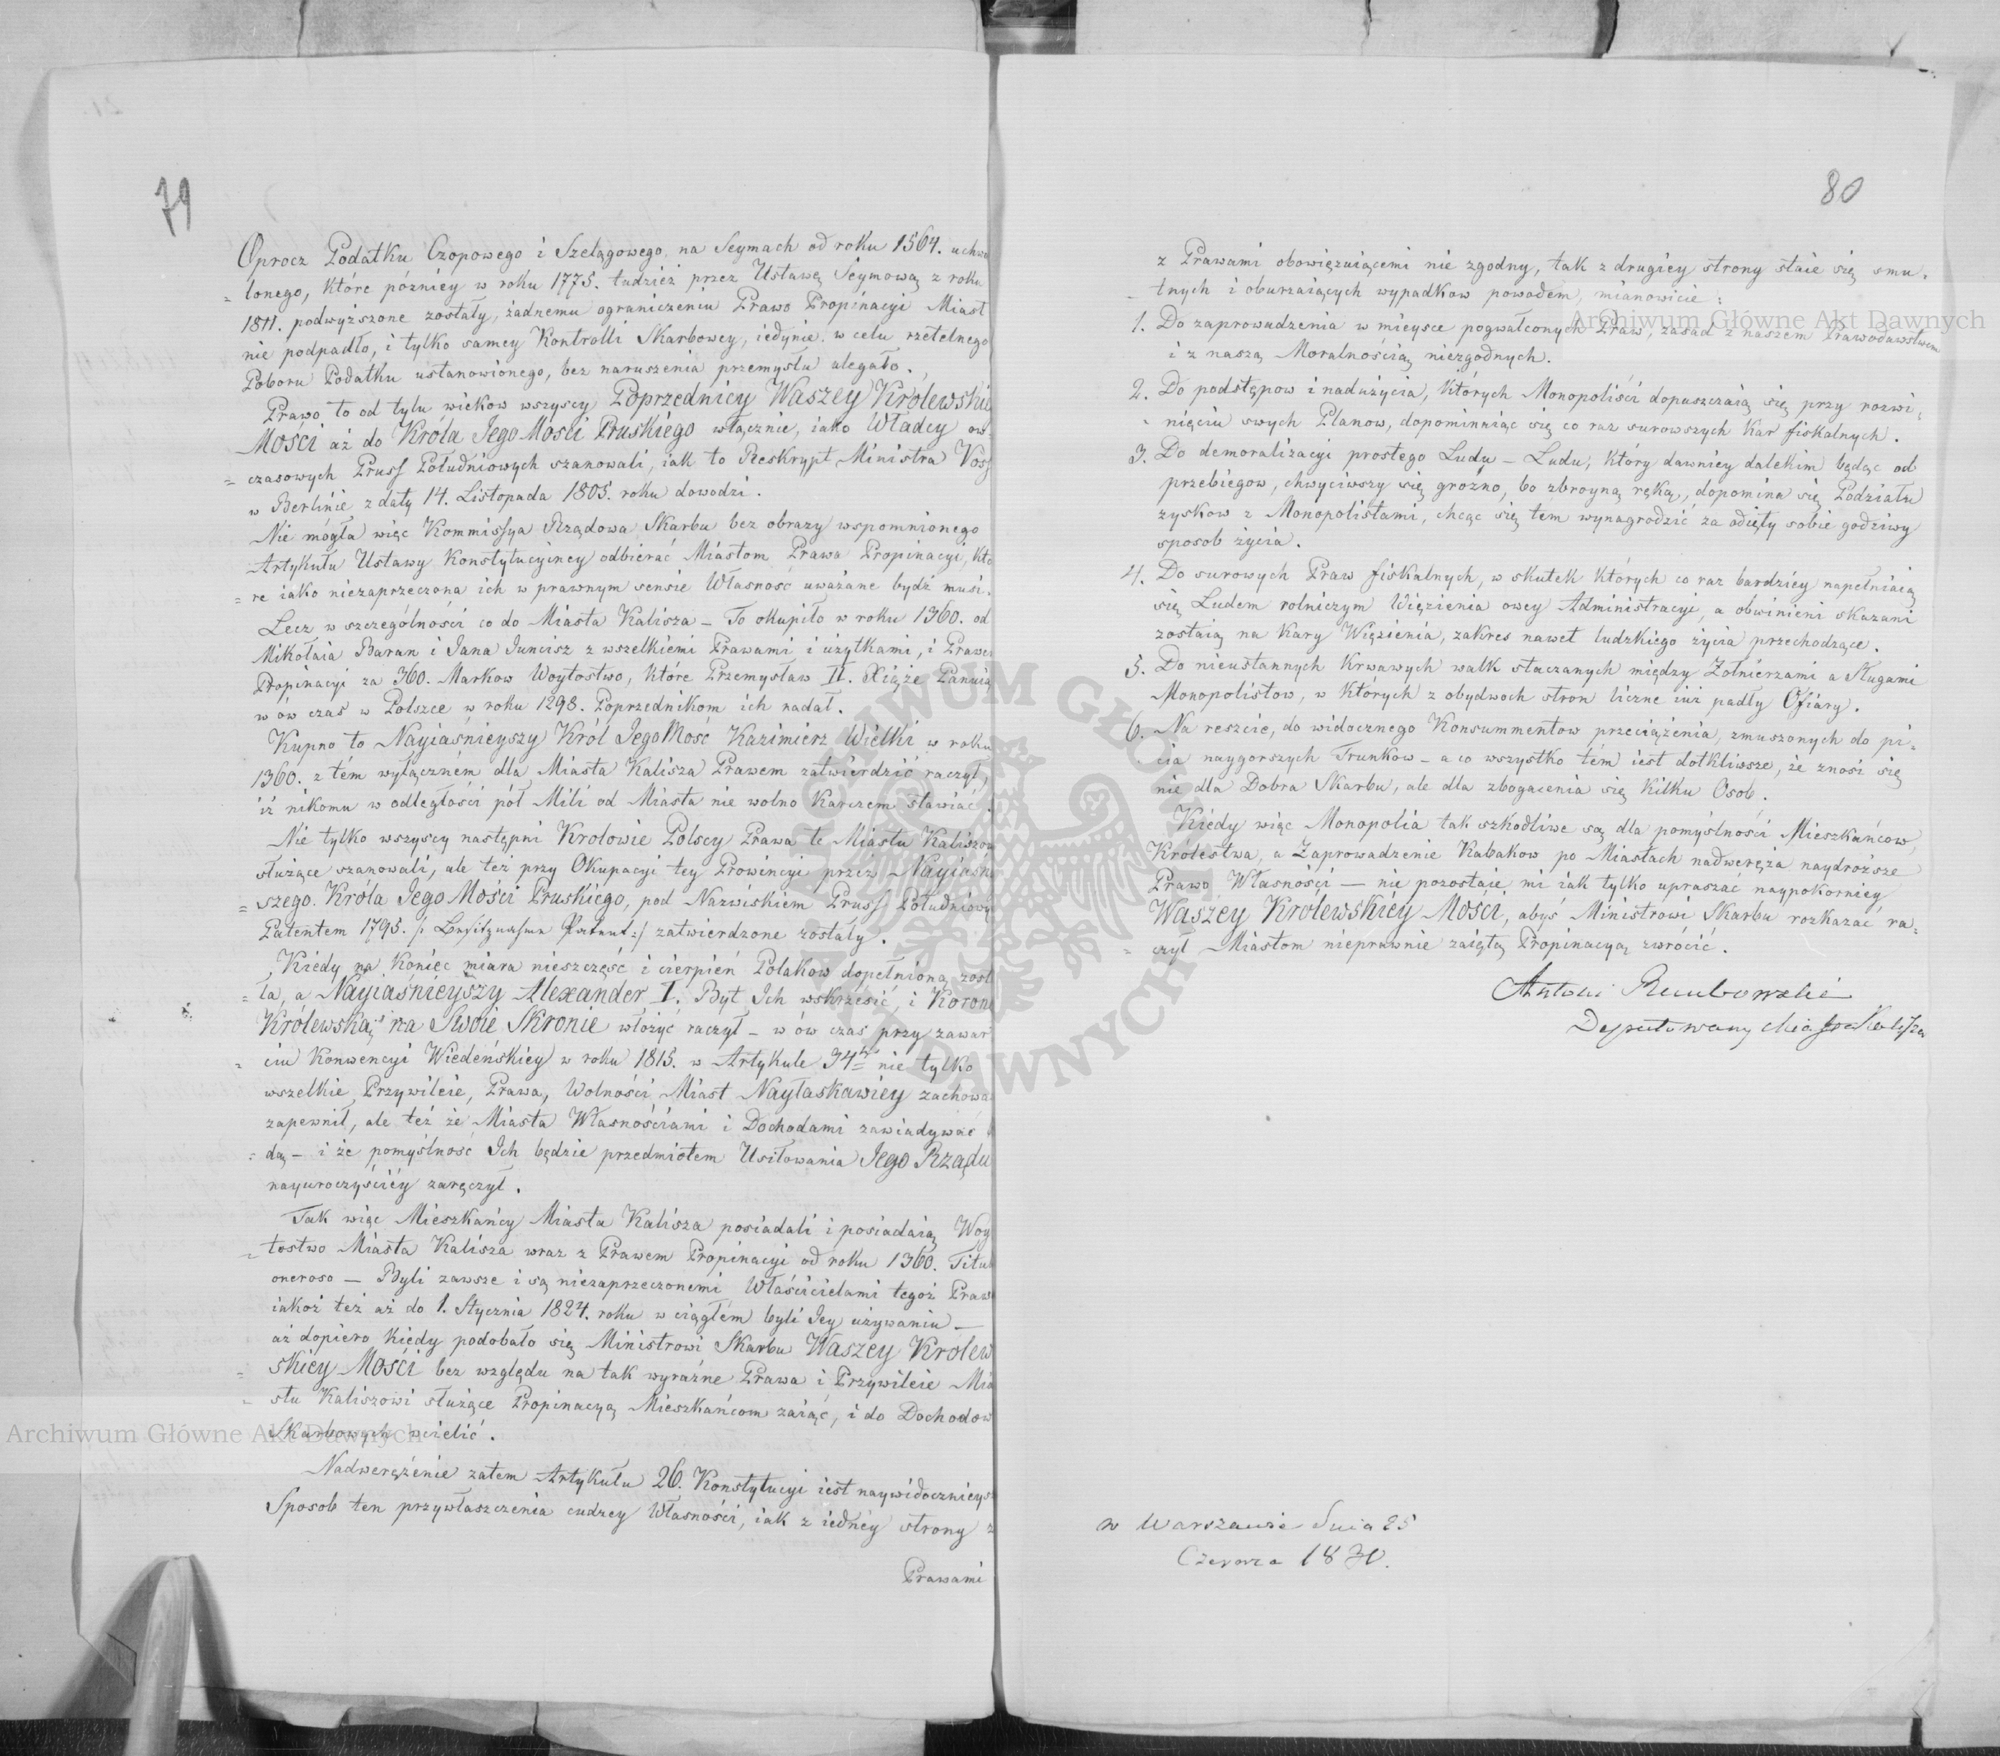 79
Oprocz Podatku Czopowego i Szelągowego, na Seymach od roku 1564. uchwa
= lonego, które pózniey w roku 1775. tudzież przez Ustawę Seymową z roku
1811. podwyższone zostały, żadnemu ograniczeniu Prawo Propinacyi Miast
nie podpadło, i tylko samey Kontrolli Skarbowey, iedynie w celu rzetelnego
Poboru Podatku ustanowionego, bez naruszenia przemysłu ulegało.
Prawo to od tylu wiekow wszyscy Poprzednicy Waszey Krolewskiey
Mości aż do Krola Jego Mości Pruskiego włącznie, iako Władcy ow
= czasowych Pruss Południowych szanowali, iak to Reskrypt Ministra Voss
w Berlinie z daty 14. Listopada 1805. roku dowodzi.
Nie mogła więc Kommissya Rządowa Skarbu bez obrazy wspomnionego
Artykułu Ustawy Konstytucyiney odbierać Miastom Prawa Propinacyi, któ
= re iako niezaprzeczona ich w prawnym sensie Własność uważane bydź musi.
Lecz w szczególności co do Miasta Kalisza – To okupiło w roku 1360. od
Mikołaia Baran i Jana Juncisz z wszelkiemi Prawami i użytkami, i Prawem
Propinacyi za 360. Markow Woytostwo, które Przemysław II. Xiąże Panuią
w ów czas w Polszce w roku 1298. Poprzednikom ich nadał.
Kupno to Nayiaśnieyszy Król JegoMość Kazimierz Wielki w roku
1360. z tém wyłączném dla Miasta Kalisza Prawem zatwierdzić raczył,
iż nikomu w odległości pół Mili od Miasta nie wolno Karczem stawiać.
Nie tylko wszyscy następni Krolowie Polscy Prawa te Miastu Kaliszow
służące szanowali, ale też przy Okupacyi tey Prowincyi przez Nayiaśn
= szego Króla Jego Mości Pruskiego, pod Nazwiskiem Pruss Południowy
Patentem 1793. /: Besitznahme Patent :/ zatwierdzone zostały.
Kiedy na koniec miara nieszczęść i cierpień Polakow dopełnioną zost
= ła, a Nayiaśnieyszy Alexander I. Byt Ich wskrzesić, i Koronę
Królewską na Swoie Skronie włożyć raczył – w ów czas przy zawar
= ciu Konwencyi Wiedeńskiey w roku 1815. w Artykule 34tym nie tylko
wszelkie Przywileie, Prawa, Wolności Miast Nayłaskawiey zachować
zapewnił, ale też że Miasta Własnościami i Dochodami zawiadywać b
= dą – i że pomyślność Ich będzie przedmiotem Usiłowania Jego Rządu
nayuroczyściéy zaręczył.
Tak więc Mieszkańcy Miasta Kalisza posiadali i posiadaią Woy
= tostwo Miasta Kalisza wraz z Prawem Propinacyi od roku 1360. Titul
oneroso – Byli zawsze i są niezaprzeczonemi Właścicielami tegoż Prawa
iakoż też aż do 1. Stycznia 1824. roku w ciągłém byli Jey używaniu –
aż dopiero kiedy podobało się Ministrowi Skarbu Waszey Królew
= skiey Mości bez względu na tak wyraźne Prawa i Przywileie Mia
- stu Kaliszowi służące Propinacyą Mieszkańcom zaiąć, i do Dochodow
Skarbowych wcielić.
Nadwerężenie zatem Artykułu 26. Konstytucyi iest naywidocznieysz
Sposob ten przywłaszczenia cudzey Własności, iak z iednéy strony z
Prawami
80
z Prawami obowięzuiącemi nie zgodny, tak z drugiey strony staie się smu.
- tnych i oburzaiących wypadkow powodem, mianowicie:
1. Do zaprowadzenia w mieysce pogwałconych Praw, zasad z naszem Prawodawstwem
i z naszą Moralnością niezgodnych.
2. Do podstępow i nadużycia, których Monopoliści dopuszczaią się przy rozwi.
- nięciu swych Planow, dopominaiąc się co raz surowszych Kar fiskalnych.
3. Do demoralizacyi prostego Ludu – Ludu, który dawniey dalekim będąc od
przebiegow, chwyciwszy się grozno, bo zbroyną ręką, dopomina się Podziału
zyskow z Monopolistami, chcąc się tém wynagrodzić za odięty sobie godziwy
sposob życia.
4. Do surowych Praw fiskalnych, w skutek których co raz bardziey napełniaią
się Ludem rolniczym Więzienia owey Administracyi, a obwinieni skazani
zostaią na Kary Więzienia, zakres nawet ludzkiego życia przechodzące.
5. Do nieustannych krwawych walk staczanych między Żołnierzami a Sługami
Monopolistow, w których z obydwoch stron liczne iuż padły Ofiáry.
6. Na reszcie, do widocznego Konsummentow przeciążenia, zmuszonych do pi.
- cia naygorszych Trunkow – a co wszystko tém iest dotkliwsze, że znosi się
nie dla Dobra Skarbu, ale dla zbogacenia się kilku Osob.
Kiedy więc Monopolia tak szkodliwe są dla pomyślności Mieszkańcow,
Królestwa, a Zaprowadzenie Kabakow po Miastach nadweręża naydroższe
Prawo Własności – nie pozostaie mi iak tylko upraszać naypokorniey
Waszey Królewskiéy Mości, abyś Ministrowi Skarbu rozkazać ra.
= czył Miastom nieprawnie zaiętą Propinacyą zwrócić.
Antoni Rembowski
Deputowany Miasta Kalisza
w Warszawie dnia 25
Czerwca 1830.
Archiwum Główne Akt Dawnych
Archiwum Główne Akt Dawnych
ARCHIWUM GŁÓWNE AKT DAWNYCH